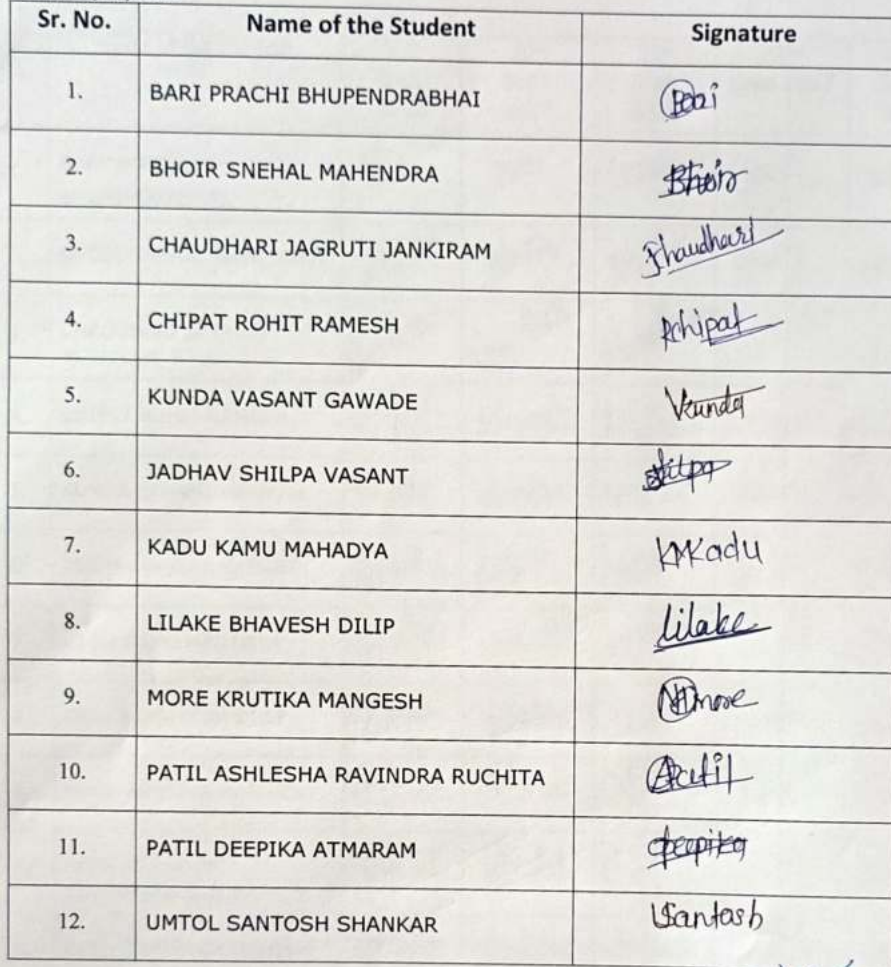 Sr. No. Name of the Student Signature
1. BARI PRACHI BHUPENDRABHAI
2. BHOIR SNEHAL MAHENDRA Bhoir
3. CHAUDHARI JAGRUTI JANKIRAM Jhaudhari
4. CHIPAT ROHIT RAMESH Rchipat
5. KUNDA VASANT GAWADE Vkunda
6. JADHAV SHILPA VASANT Shilpa
7. KADU KAMU MAHADYA KMKadu
8. LILAKE BHAVESH DILIP Lilake
9. MORE KRUTIKA MANGESH
10. PATIL ASHLESHA RAVINDRA RUCHITA
11. PATIL DEEPIKA ATMARAM Deepika
12. UMTOL SANTOSH SHANKAR USantosh